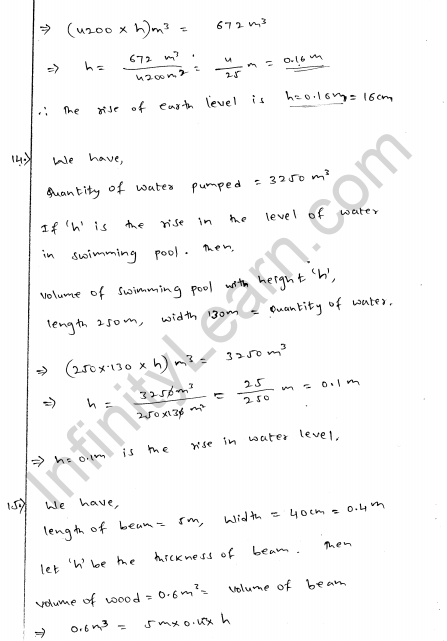 ⇒ (4200 × h)m³ = 672 m³
⇒ h = 672 m³ / 4200m² = 4/25 m = 0.16 m
∴ The rise of earth level is h=0.16m = 16cm
14.) We have,
Quantity of water pumped = 3250 m³
If 'h' is the rise in the level of water
in swimming pool. Then,
Volume of swimming pool with height 'h',
length 250m, width 130m = Quantity of water.
⇒ (250×130 × h) m³ = 3250 m³
⇒ h = 3250m³ / 250×130 m² = 25/250 m = 0.1m
⇒ h= 0.1m is the rise in water level,
15.) We have,
length of beam = 5m, width = 40cm = 0.4m
let 'h' be the thickness of beam. Then
volume of wood = 0.6m³ = volume of beam
⇒ 0.6m³ = 5m×0.4× h
InfinityLearn.com